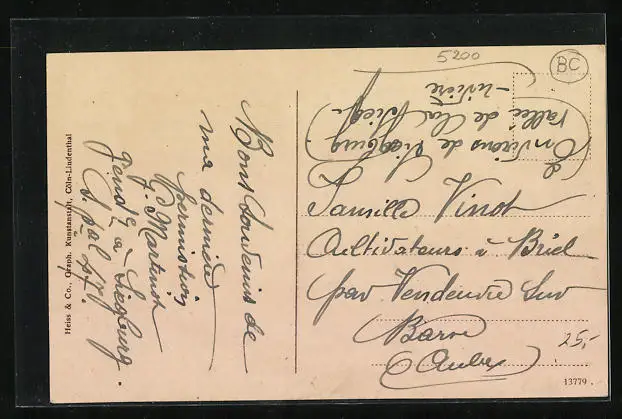 5200
BC
Environs de Siegburg.
Vallée de la Sieg
- rivière
Bons Souvenirs de
ma dernière
permission
F. Martinot
Gend. à Siegburg.
S. pal 
Famille Vinot
Cultivateurs à Briel
par Vendeuvre sur
Barse
(Aube)
25,-
13779.
Heiss & Co., Graph. Kunstanstalt, Cöln-Lindenthal